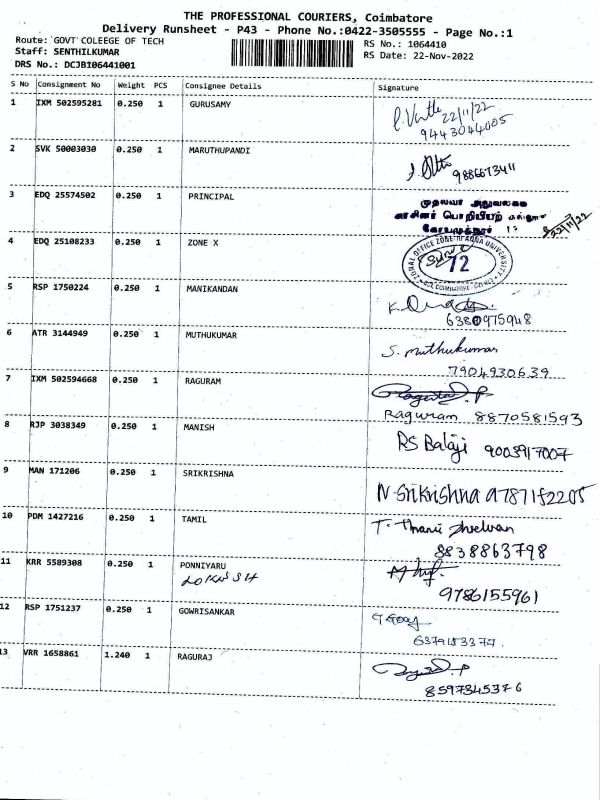 THE PROFESSIONAL COURIERS, Coimbatore
Delivery Runsheet - P43 - Phone No.:0422-3505555 - Page No.:1
Route: GOVT COLEEGE OF TECH
Staff: SENTHILKUMAR
DRS No.: DCJB106441001
RS No.: 1064410
RS Date: 22-Nov-2022
S No Consignment No Weight PCS Consignee Details Signature
1 IXM 502595281 0.250 1 GURUSAMY
22/11/22
9443044005
2 SVK 50003030 0.250 1 MARUTHUPANDI
9886673411
3 EDQ 25574502 0.250 1 PRINCIPAL
முதல்வர் அலுவலகம்
22/11/22
4 EDQ 25108233 0.250 1 ZONE X
72
5 RSP 1750224 0.250 1 MANIKANDAN
6380975948
6 ATR 3144949 0.250 1 MUTHUKUMAR
S. muthukumar
7904930639
7 IXM 502594668 0.250 1 RAGURAM
Raguram 8870581593
8 RJP 3038349 0.250 1 MANISH
RS Balaji 9003917007
9 MAN 171206 0.250 1 SRIKRISHNA
N. Srikrishna 9787152205
10 PDM 1427216 0.250 1 TAMIL
8838863798
11 KRR 5589308 0.250 1 PONNIYARU
9786155961
12 RSP 1751237 0.250 1 GOWRISANKAR
6379153377.
13 VRR 1658861 1.240 1 RAGURAJ
8597345376